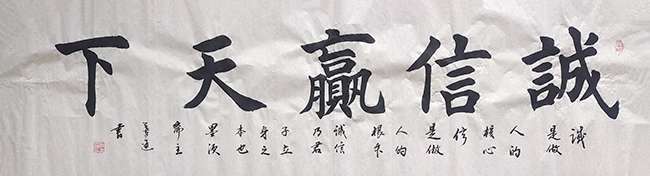 誠信贏天下
誠
是做
人的
核心
信
是做
人的
根本
誠信
乃君
子立
身之
本也
墨浪
書